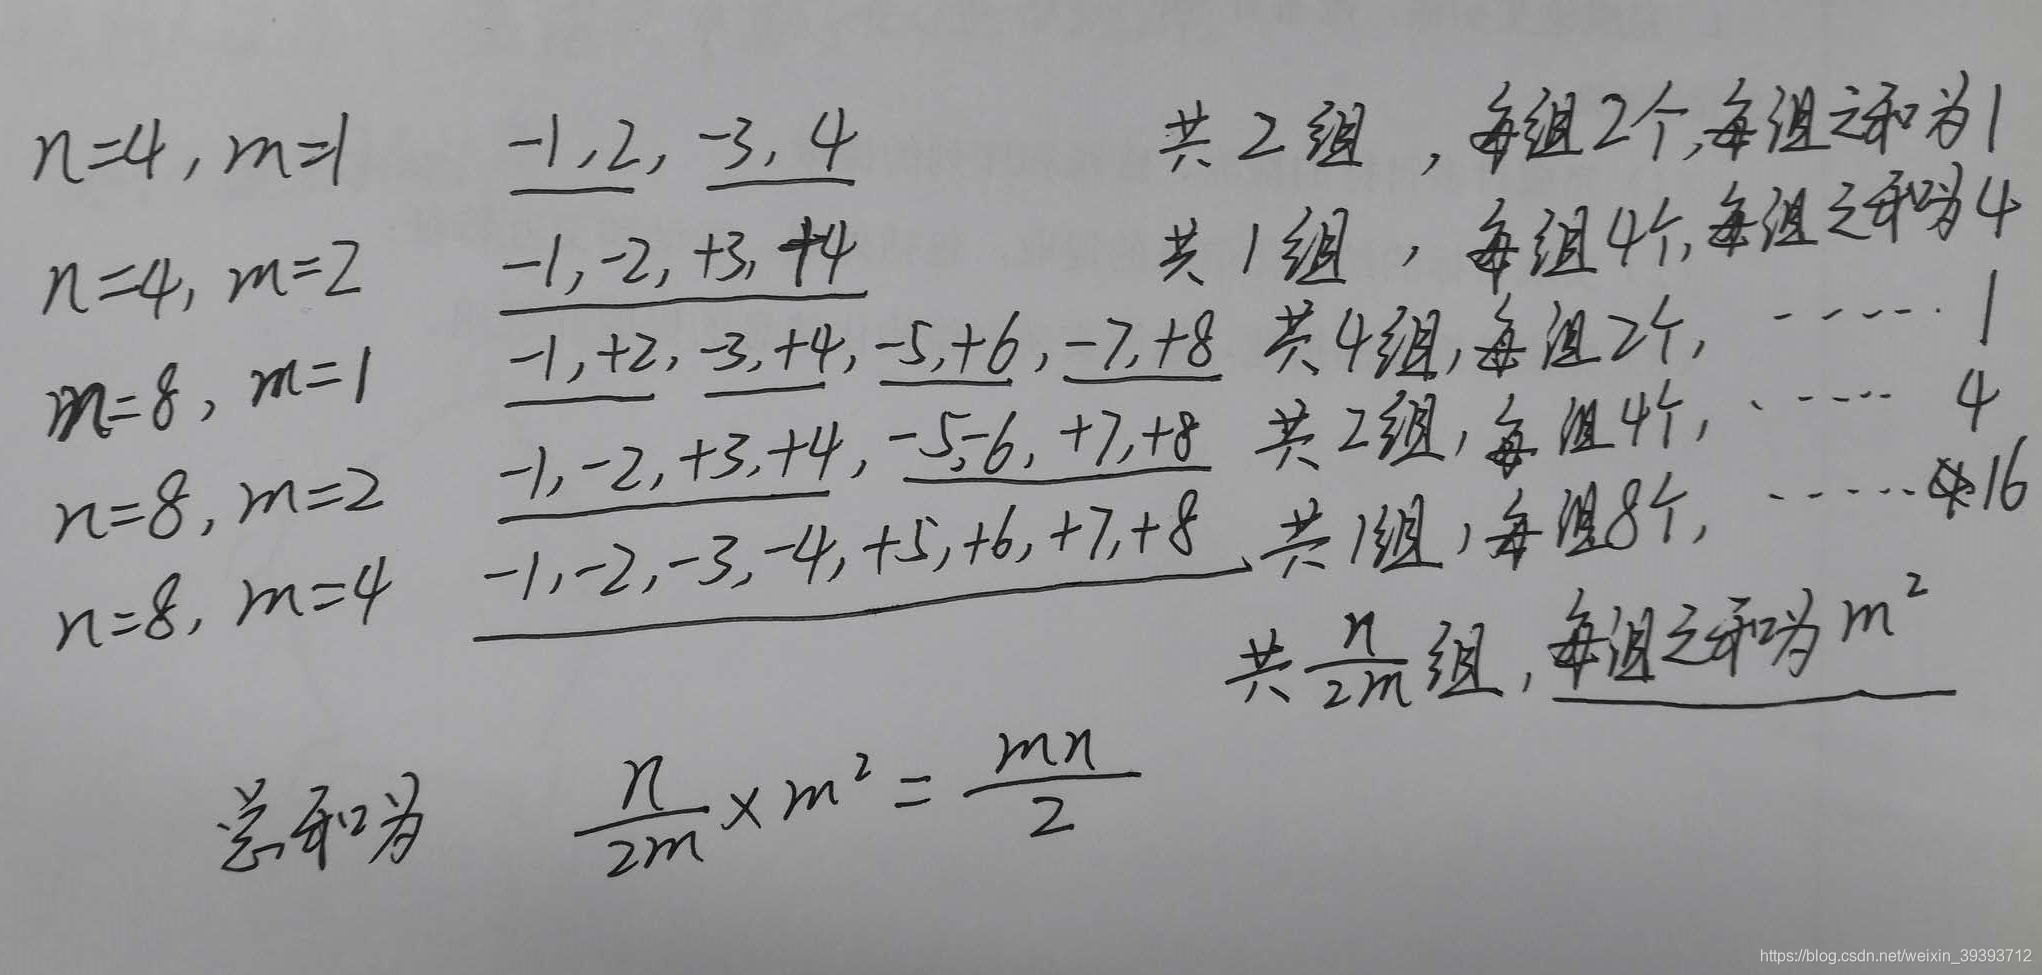 n=4, m=1 -1,2, -3, 4 共2组, 每组2个,每组之和为1
n=4, m=2 -1,-2,+3,+4 共1组, 每组4个,每组之和为4
n=8, m=1 -1,+2,-3,+4,-5,+6,-7,+8 共4组,每组2个, ------1
n=8, m=2 -1,-2,+3,+4,-5,-6,+7,+8 共2组,每组4个, ------4
n=8, m=4 -1,-2,-3,-4,+5,+6,+7,+8 共1组,每组8个, ------16
共n/2m组,每组之和为m²
总和为 n/2m × m² = mn/2
https://blog.csdn.net/weixin_39393712